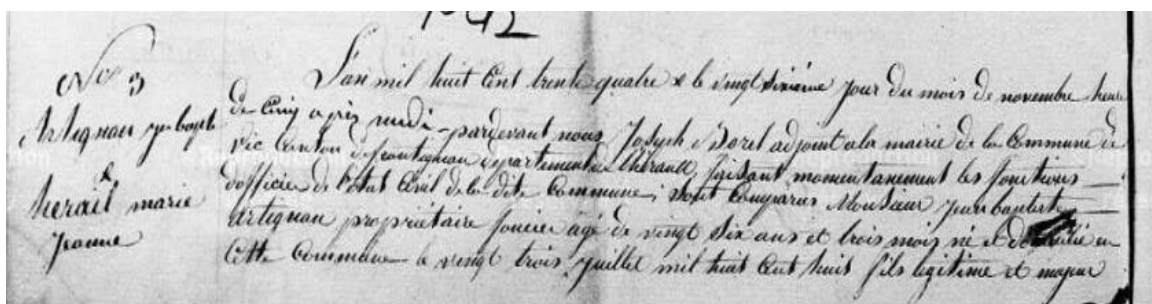 1842
N° 3
Artignan jn bapte
&
herail marie
jeanne
L'an mil huit Cent trente quatre & le vingt sixième jour du mois de novembre heure
de cinq après midi - pardevant nous Joseph Borel adjoint a la mairie de la Commune de
vic Canton de frontignan département de l'hérault, faisant momentanement les fonctions
d'officier de l'état Civil de la dite Commune; sont Comparus Monsieur jean baptiste
artignan propriétaire foncier agé de vingt six ans et trois mois né et domicilié en
Cette Commune le vingt trois juillet mil huit Cent huit fils légitime et majeur